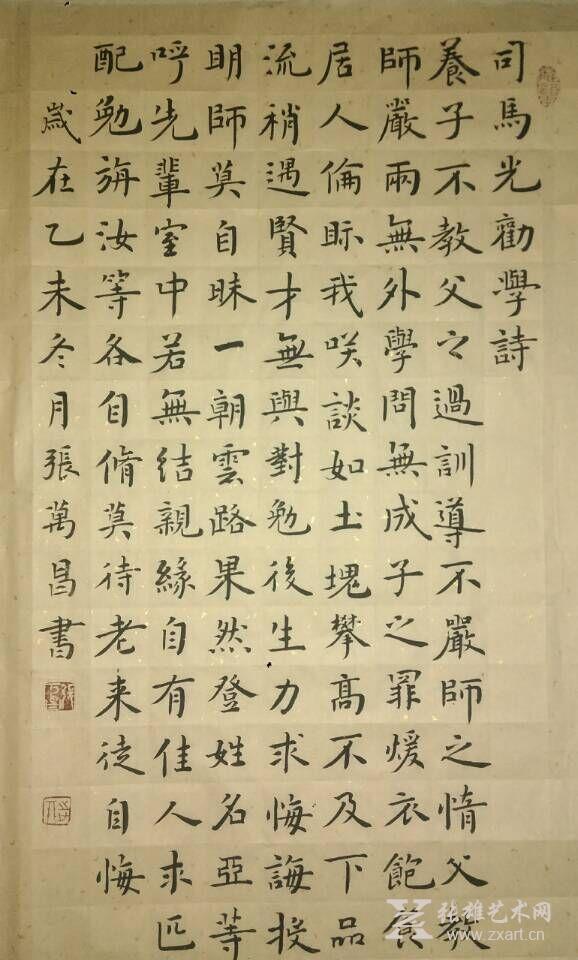 司馬光勸學詩
養子不教父之過訓導不嚴師之惰父教
師嚴兩無外學問無成子之罪煖衣飽食
居人倫眎我咲談如土塊攀高不及下品
流稍遇賢才無與對勉後生力求悔誨投
眀師莫自昧一朝雲路果然登姓名亞等
呼先輩室中若無結親緣自有佳人求匹
配勉旃汝等各自脩莫待老来徒自悔
歲在乙未冬月張萬昌書
张雄艺术网
www.zxart.cn